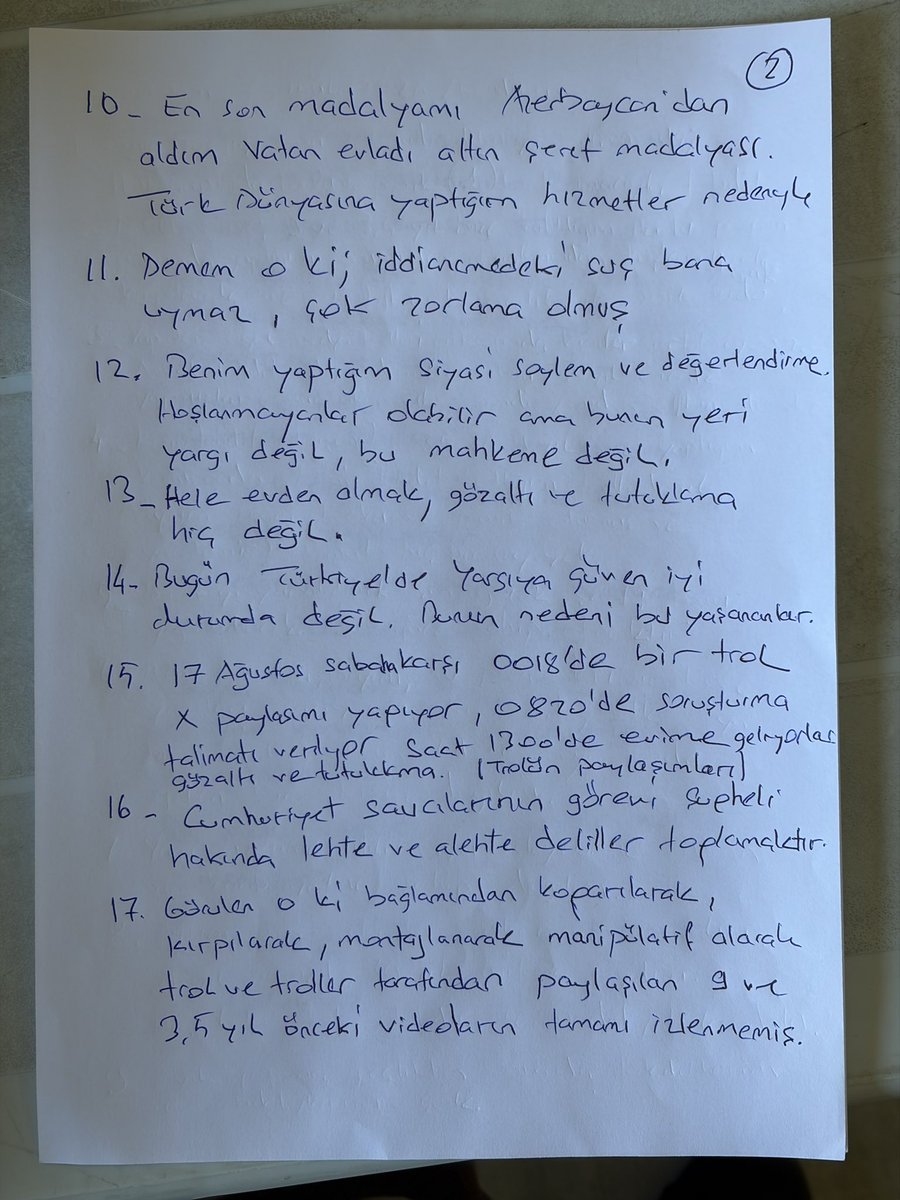 2
10- En son madalyamı Azerbaycan'dan
aldım Vatan evladı altın şeref madalyası.
Türk Dünyasına yaptığım hizmetler nedeniyle
11. Demem o ki; iddianamedeki suç bana
uymaz, çok zorlama olmuş
12. Benim yaptığım siyasi söylem ve değerlendirme.
Hoşlanmayanlar olabilir ama bunun yeri
yargı değil, bu mahkeme değil.
13- Hele evden olmak, gözaltı ve tutuklama
hiç değil.
14- Bugün Türkiye'de Yargıya güven iyi
durumda değil. Bunun nedeni bu yaşananlar.
15. 17 Ağustos sabahakarşı 0018'de bir trol
X paylaşımı yapıyor, 0820'de soruşturma
talimatı veriliyor saat 1300'de evime geliyorlar
gözaltı ve tutuklama. (Trolün paylaşımları)
16- Cumhuriyet savcılarının görevi şüpheli
hakında lehte ve alehte deliller toplamaktır.
17. Görülen o ki bağlamından koparılarak,
kırpılarak, montajlanarak manipülatif olarak
trol ve troller tarafından paylaşılan 9 ve
3,5 yıl önceki videoların tamamı izlenmemiş.